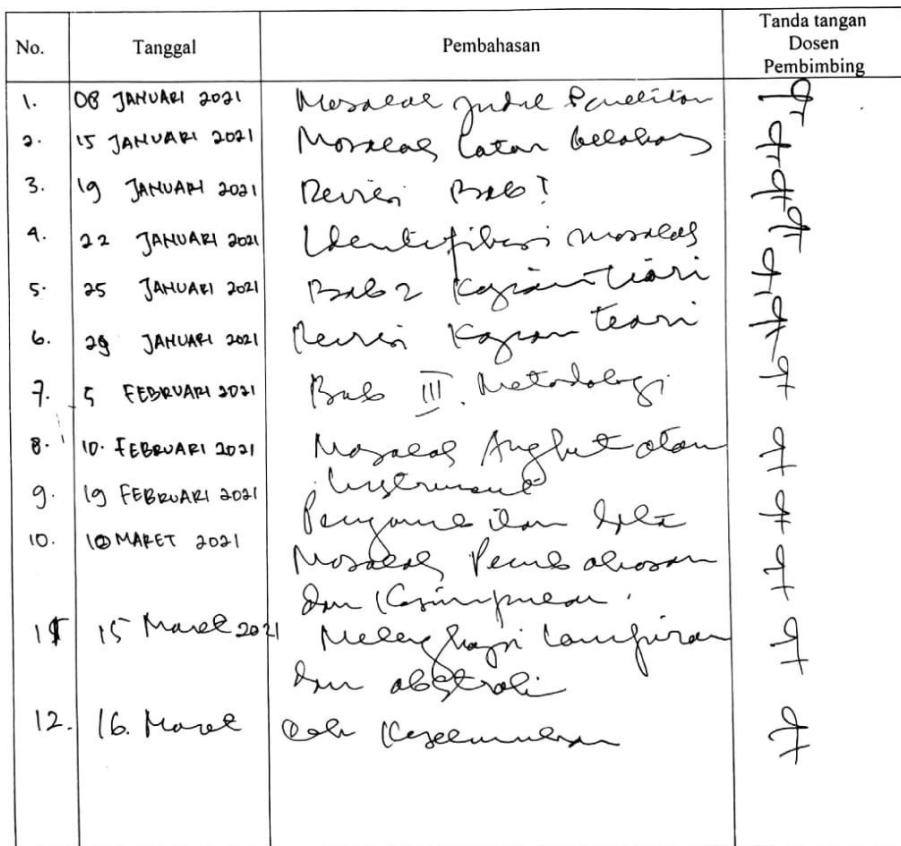 No. Tanggal Pembahasan Tanda tangan
Dosen
Pembimbing
1. 08 JANUARI 2021 Masalah judul Penelitian
2. 15 JANUARI 2021 Masalah latar belakang
3. 19 JANUARI 2021 Revisi Bab I
4. 22 JANUARI 2021 Identifikasi masalah
5. 25 JANUARI 2021 Bab 2 Kajian teori
6. 29 JANUARI 2021 Revisi Kajian teori
7. 5 FEBRUARI 2021 Bab III. Metodologi
8. 10. FEBRUARI 2021 Masalah Angket atau
Instrument
9. 19 FEBRUARI 2021 Pengambilan data
10. 10 MARET 2021 Masalah Pembahasan
dan Kesimpulan.
11 15 Maret 2021 Melengkapi lampiran
dan abstrak
12. 16. Maret Cek Keseluruhan